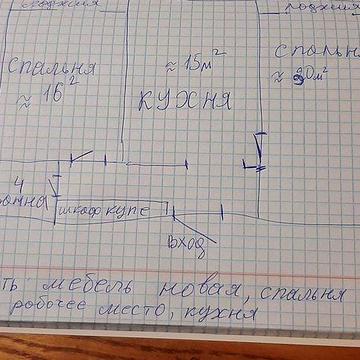 лоджия
лоджия
спальня
≈ 16²
≈ 15м²
кухня
спальн
≈ 20м²
4
шкаф купе
вход
ть мебель новая, спальня
рабочее место, кухня